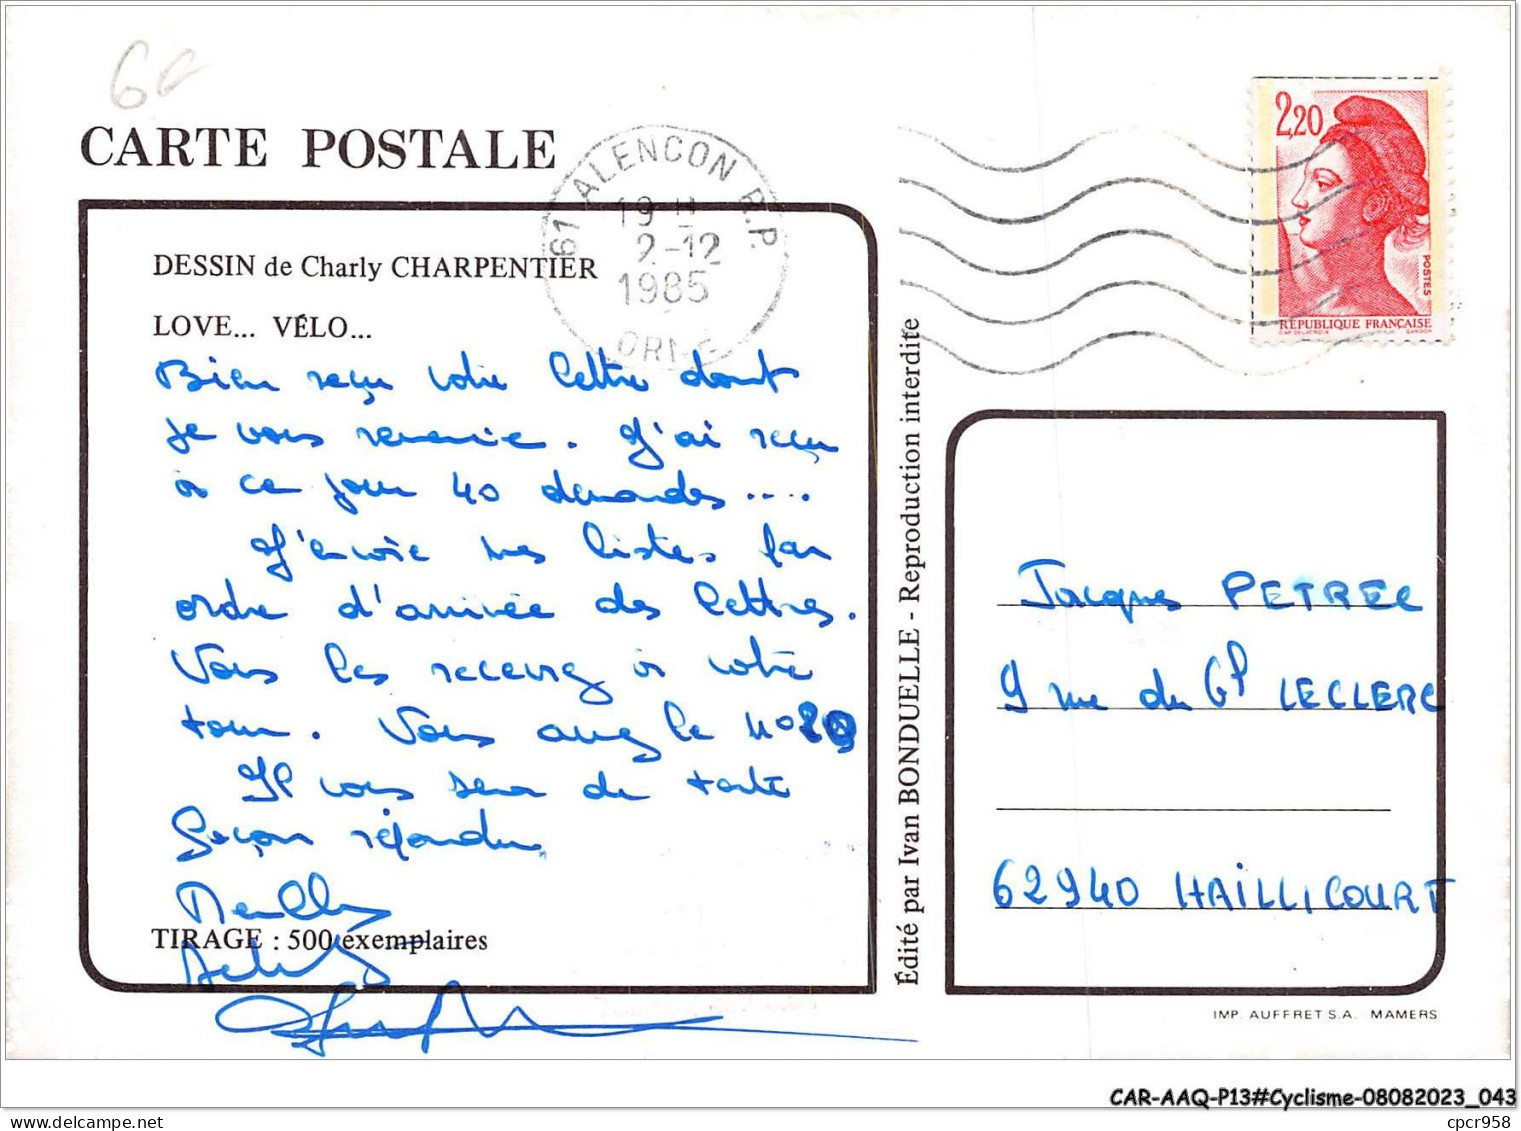 6€
CARTE POSTALE
61 ALENCON R.P.
19 H
2-12
1985
ORNE
2,20
POSTES
RÉPUBLIQUE FRANÇAISE
DESSIN de Charly CHARPENTIER
LOVE... VÉLO...
Bien reçu votre lettre dont
je vous remercie. J'ai reçu
à ce jour 40 demandes ....
J'envoie mes listes par
ordre d'arrivée des lettres.
Vous les recevrez à votre
tour. Vous avez le n°
Il vous sera de toute
façon répondu
TIRAGE : 500 exemplaires
Édité par Ivan BONDUELLE - Reproduction interdite
Jacques PETREL
9 rue du Gl LECLERC
62940 HAILLICOURT
IMP. AUFFRET S.A. MAMERS
CAR-AAQ-P13#Cyclisme-08082023_043
cpcr958